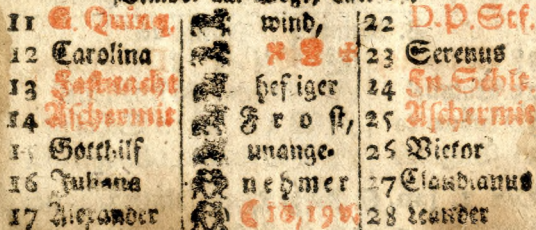 11 E. Quinq. wind, 22
12 Carolina 23 Serenus
13 Fastnacht heftiger 24
14 Aschermit Frost, 25 Aschermit
Gotthilf unange- 26 Victor
16 Juliana nehmer 27 Claudianus
17 Alexander 10,19 v. 28 Leander